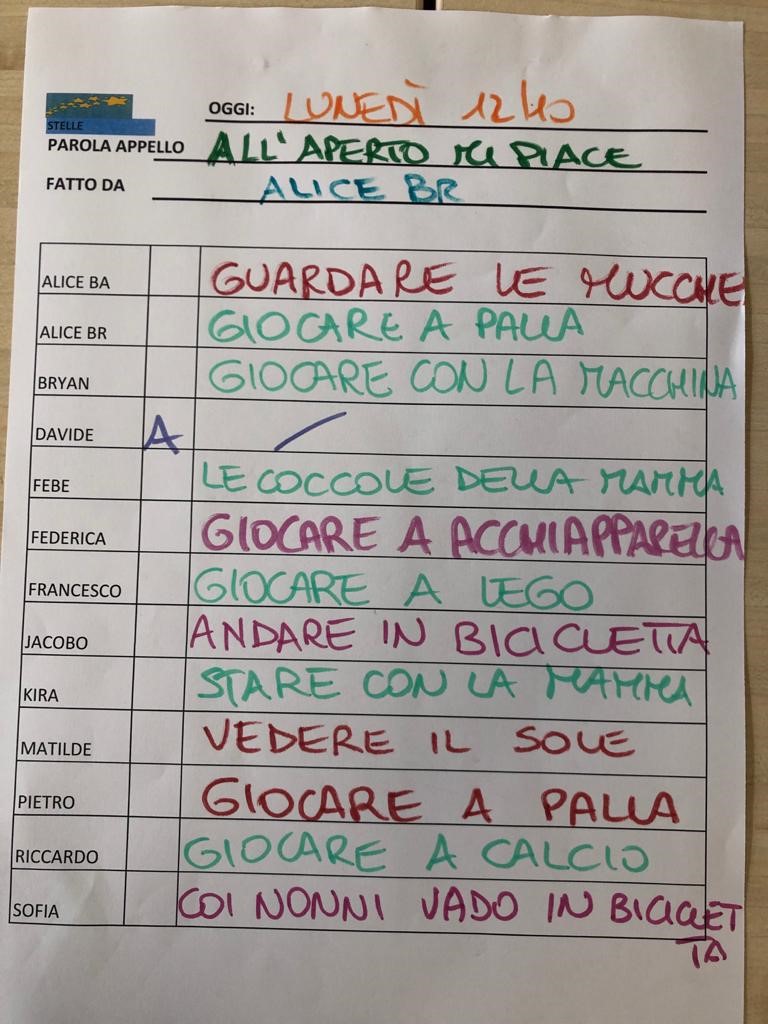 OGGI: LUNEDÌ 12/10
STELLE
PAROLA APPELLO ALL'APERTO MI PIACE
FATTO DA ALICE BR
ALICE BA GUARDARE LE MUCCHE
ALICE BR GIOCARE A PALLA
BRYAN GIOCARE CON LA MACCHINA
DAVIDE A /
FEBE LE COCCOLE DELLA MAMMA
FEDERICA GIOCARE A ACCHIAPPARELLA
FRANCESCO GIOCARE A LEGO
JACOBO ANDARE IN BICICLETTA
KIRA STARE CON LA MAMMA
MATILDE VEDERE IL SOLE
PIETRO GIOCARE A PALLA
RICCARDO GIOCARE A CALCIO
SOFIA COI NONNI VADO IN BICICLET
TA